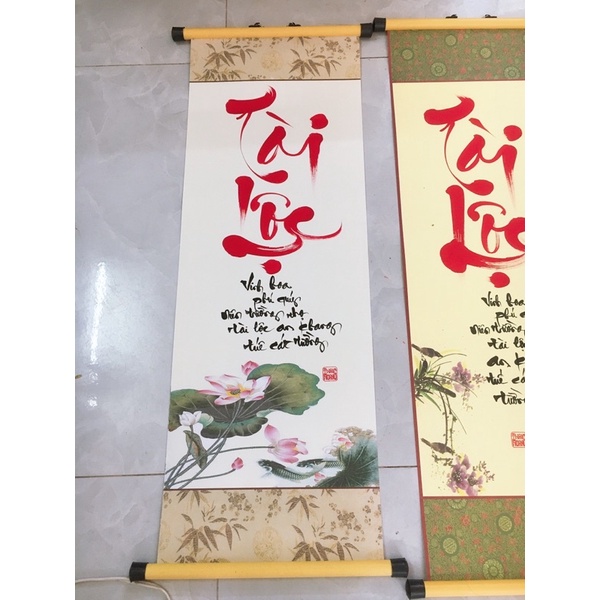 Tài
Lộc
Vinh hoa
phú quý
miên trường thọ
tài lộc an khang
thế cát tường
Tài
Lộc
Vinh hoa
phú
miên trường
tài lộc
an
thế
tường